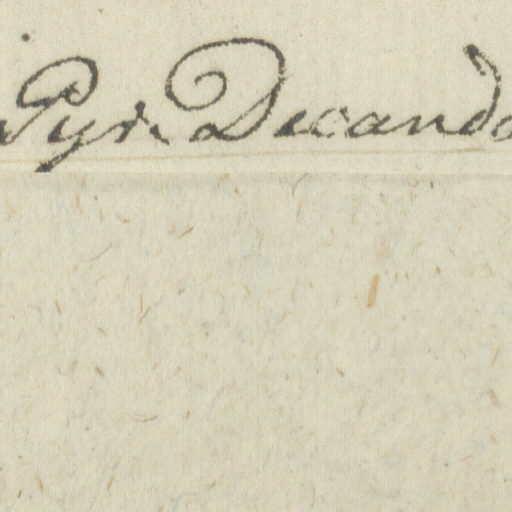 Pyr. Decando